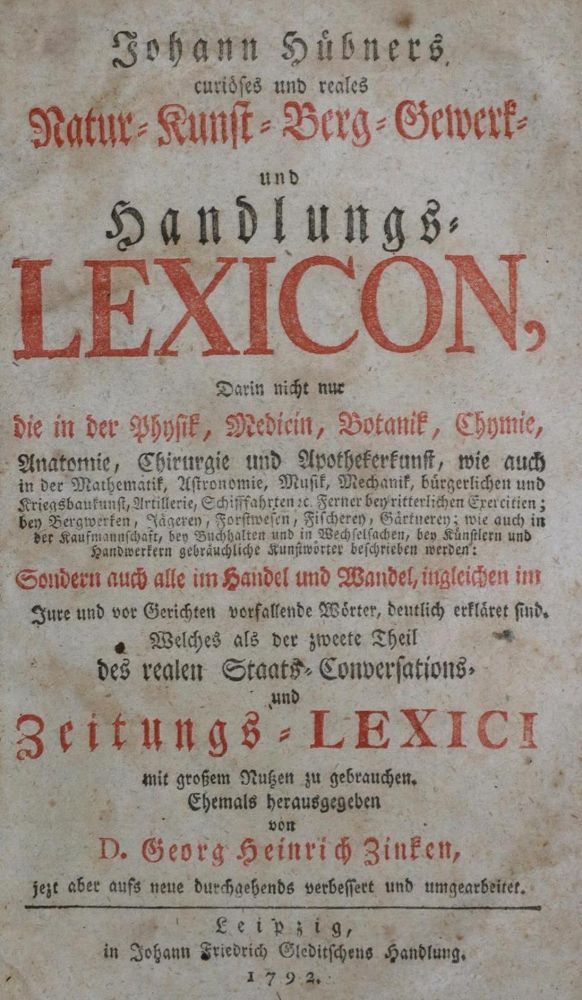 Johann Hübners
curiöses und reales
Natur-Kunst-Berg-Gewerk-
und
Handlungs-
LEXICON,
Darin nicht nur
die in der Physik, Medicin, Botanik, Chymie,
Anatomie, Chirurgie und Apothekerkunst, wie auch
in der Mathematik, Astronomie, Musik, Mechanik, bürgerlichen und
Kriegsbaukunst, Artillerie, Schifffahrten ꝛc. Ferner bey ritterlichen Exercitien;
bey Bergwerken, Jägerey, Forstwesen, Fischerey, Gärtnerey; wie auch in
der Kaufmannschaft, bey Buchhalten und in Wechselsachen, bey Künstlern und
Handwerkern gebräuchliche Kunstwörter beschrieben werden:
Sondern auch alle im Handel und Wandel, ingleichen im
Jure und vor Gerichten vorfallende Wörter, deutlich erkläret sind.
Welches als der zweete Theil
des realen Staats-Conversations-
und
Zeitungs-LEXICI
mit großem Nutzen zu gebrauchen.
Ehemals herausgegeben
von
D. Georg Heinrich Zinken,
jezt aber aufs neue durchgehends verbessert und umgearbeitet.
Leipzig,
in Johann Friedrich Gleditschens Handlung.
1792.